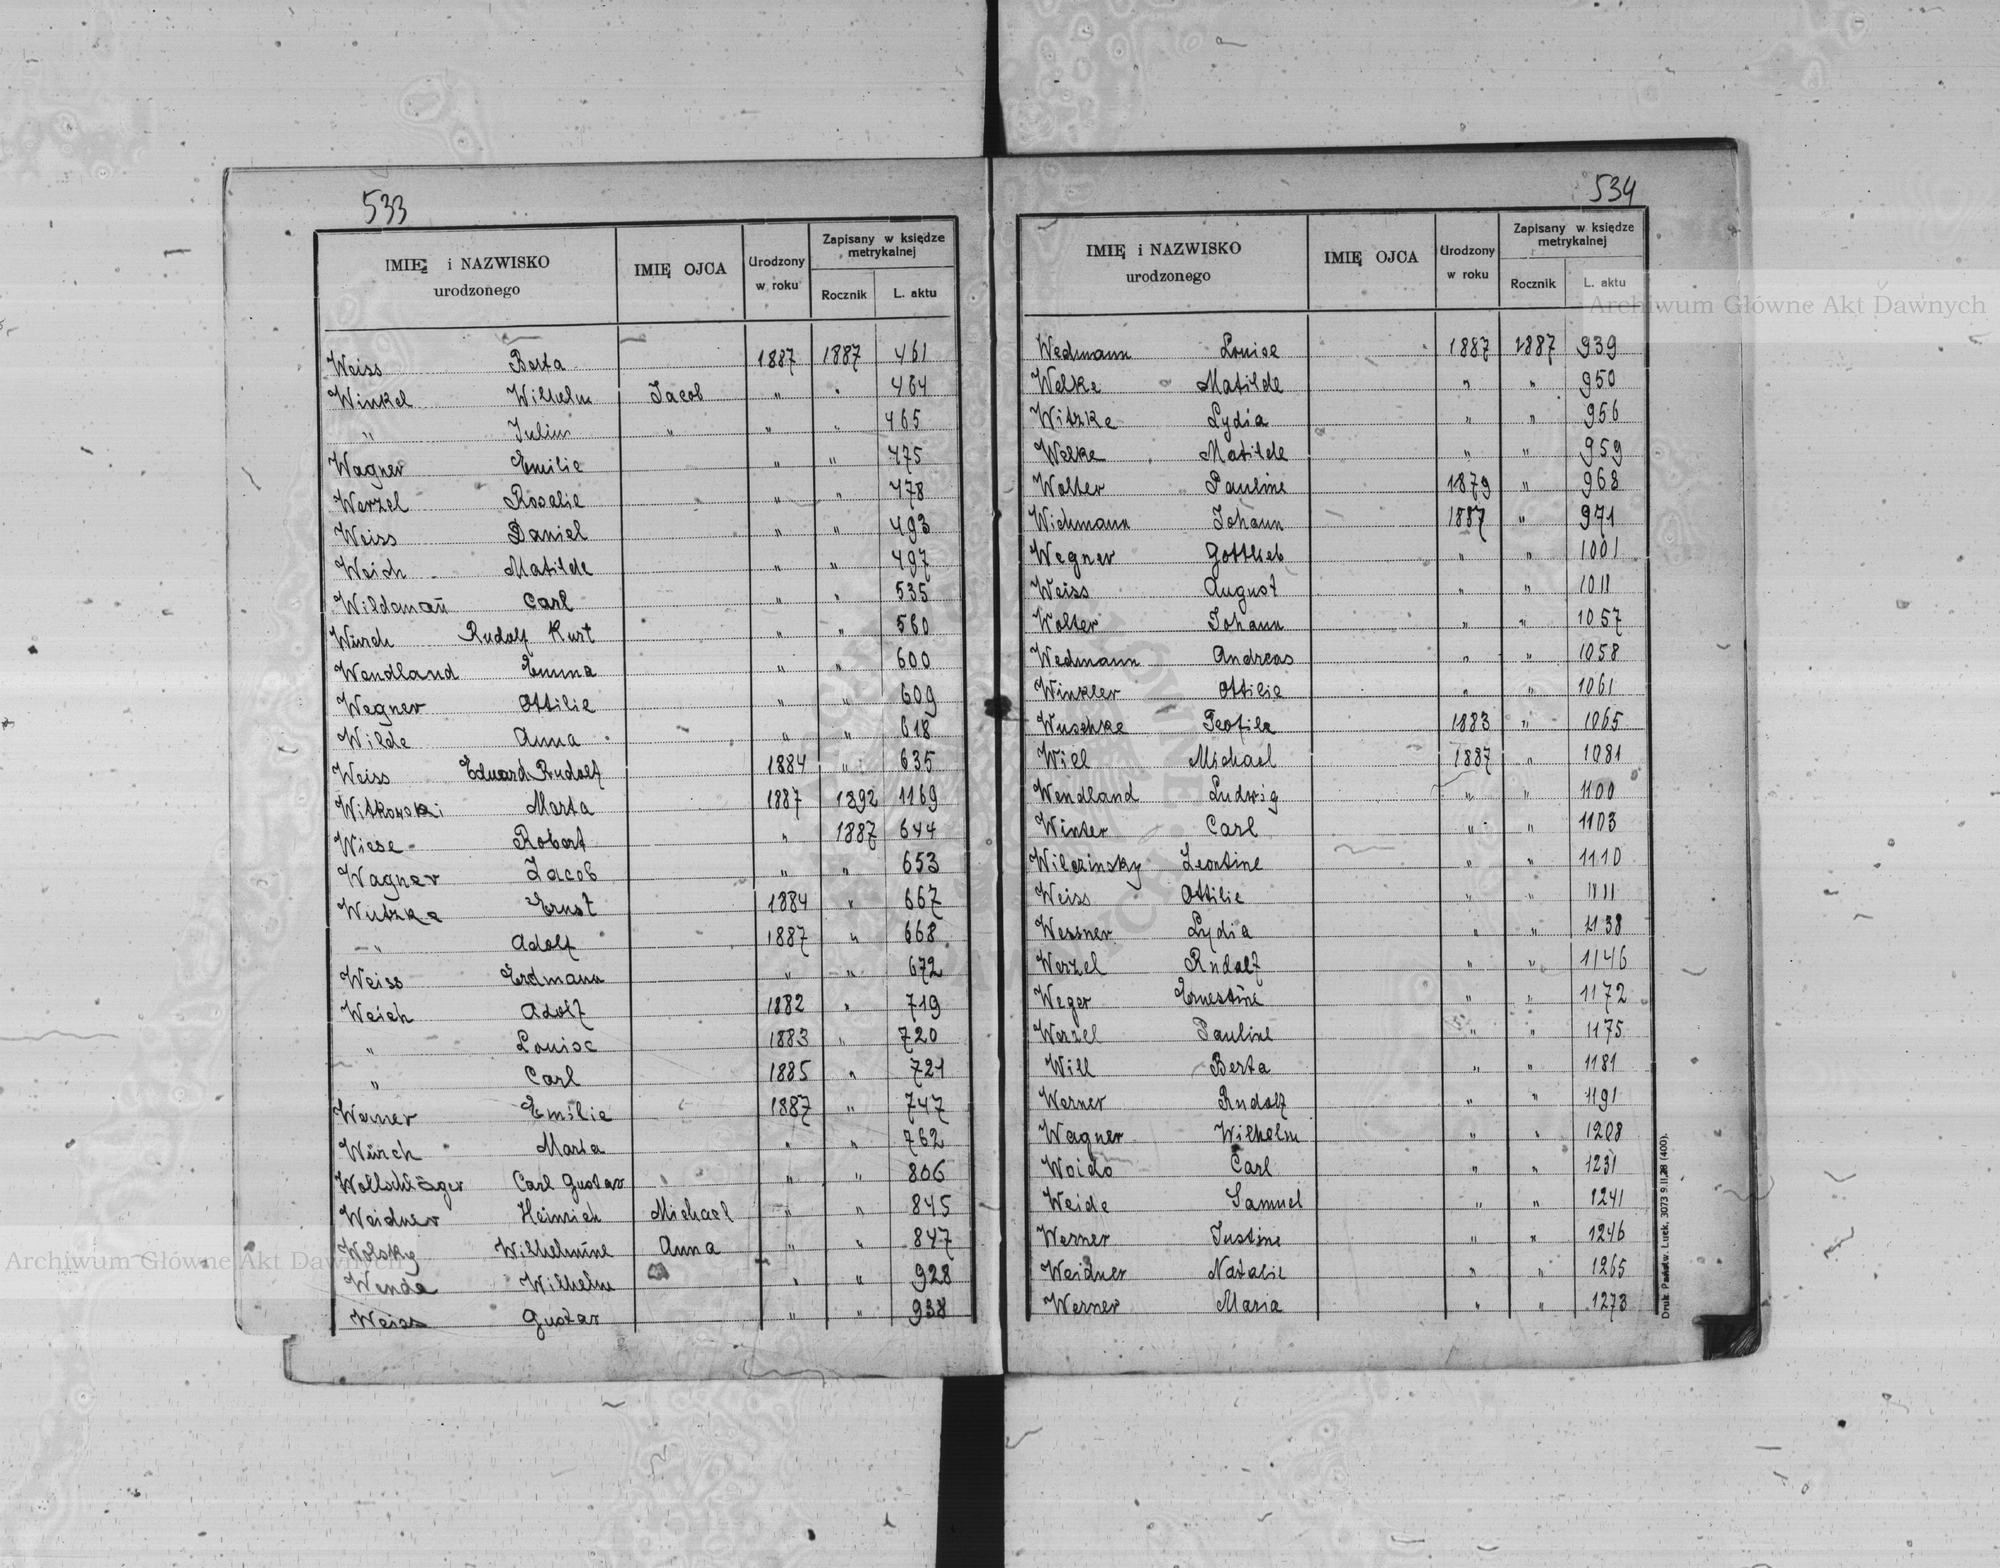 533
IMIĘ i NAZWISKO urodzonego IMIĘ OJCA Urodzony w roku Zapisany w księdze metrykalnej Rocznik L. aktu
Weiss Berta 1887 1887 461
Winkel Wilhelm Jacob " " 464
" Julius " " " 465
Wagner Emilie " " 475
Werzel Rosalie " " 478
Weiss Daniel " " 493
Weich Matilde " " 497
Wildemañ Carl " " 535
Würch Rudolf Kurt " " 560
Wendland Emma " " 600
Wegner Ottilie " " 609
Wilde Anna " " 618
Weiss Eduard Rudolf 1884 " 635
Witkowski Marta 1887 1892 1169
Wiese Robert " 1887 644
Wagner Jacob " " 653
Wutzke Ernst 1884 " 667
" Adolf 1887 " 668
Weiss Erdmann " " 672
Weich Adolf 1882 " 719
" Louise 1883 " 720
" Carl 1885 " 721
Werner Emilie 1887 " 747
Würch Maria " " 762
Wollschläger Carl Gustav " " 806
Weidner Heinrich Michael " " 845
Wolsky Wilhelmine Anna " " 847
Wende Wilhelm " " 928
Weiss Gustav " " 938
534
IMIĘ i NAZWISKO urodzonego IMIĘ OJCA Urodzony w roku Zapisany w księdze metrykalnej Rocznik L. aktu
Wedmann Louise 1887 1887 939
Welke Matilde " " 950
Witzke Lydia " " 956
Welke Matilde " " 959
Wolter Pauline 1879 " 968
Wichmann Johann 1887 " 971
Wegner Gottlieb " " 1001
Weiss August " " 1011
Wolter Johann " " 1057
Wedmann Andreas " " 1058
Winkler Ottilie " " 1061
Wuschke Teofila 1883 " 1065
Will Michael 1887 " 1081
Wendland Ludwig " " 1100
Winter Carl " " 1103
Wilczinsky Leontine " " 1110
Weiss Ottilie " " 1111
Wessner Lydia " " 1138
Werzel Rudolf " " 1146
Weger Ernestine " " 1172
Werzel Pauline " " 1175
Will Berta " " 1181
Werner Rudolf " " 1191
Wagner Wilhelm " " 1208
Woido Carl " " 1231
Weide Samuel " " 1241
Werner Justine " " 1246
Weidner Natalie " " 1265
Werner Maria " " 1273
Druk. Państw. Łuck, 3073 9.II.28 (400).
Archiwum Główne Akt Dawnych
Archiwum Główne Akt Dawnych